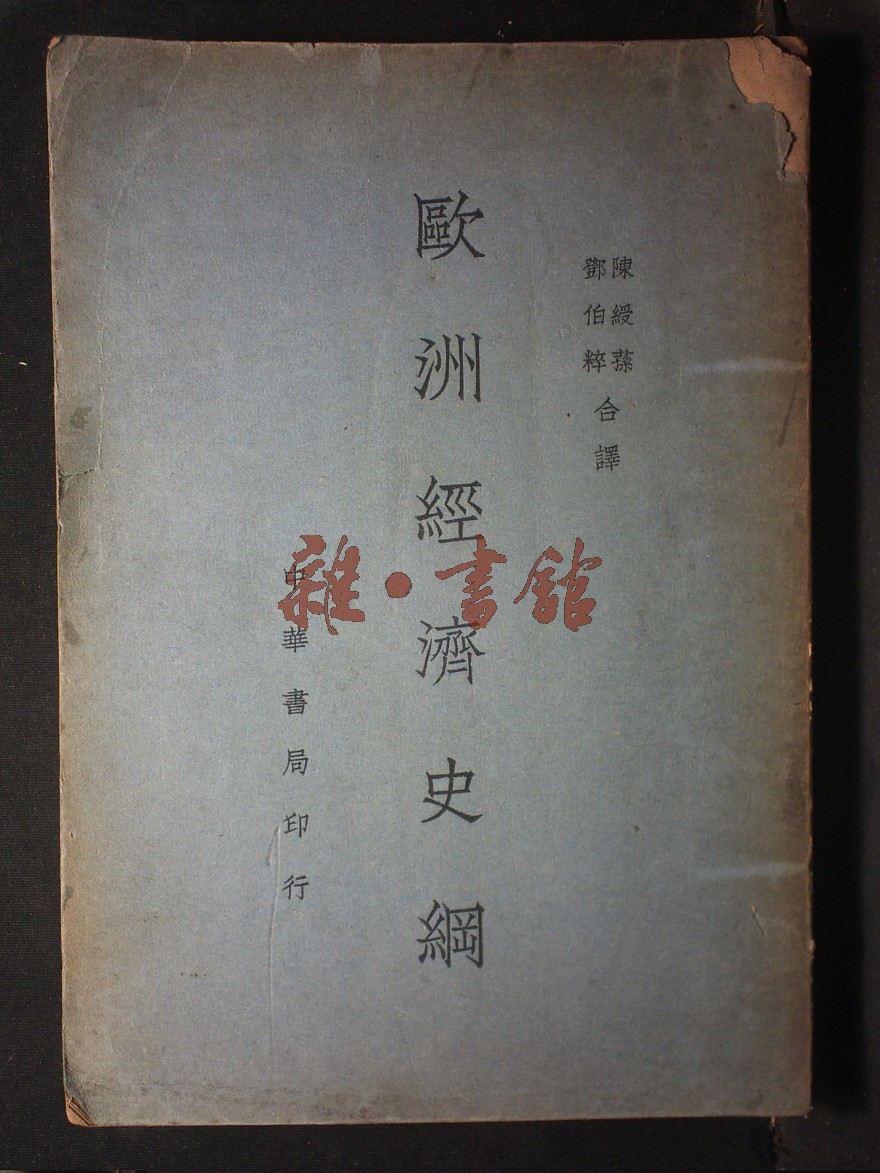 陳綬蓀
鄧伯粹
合譯
歐洲經濟史綱
中華書局印行
雜·書館